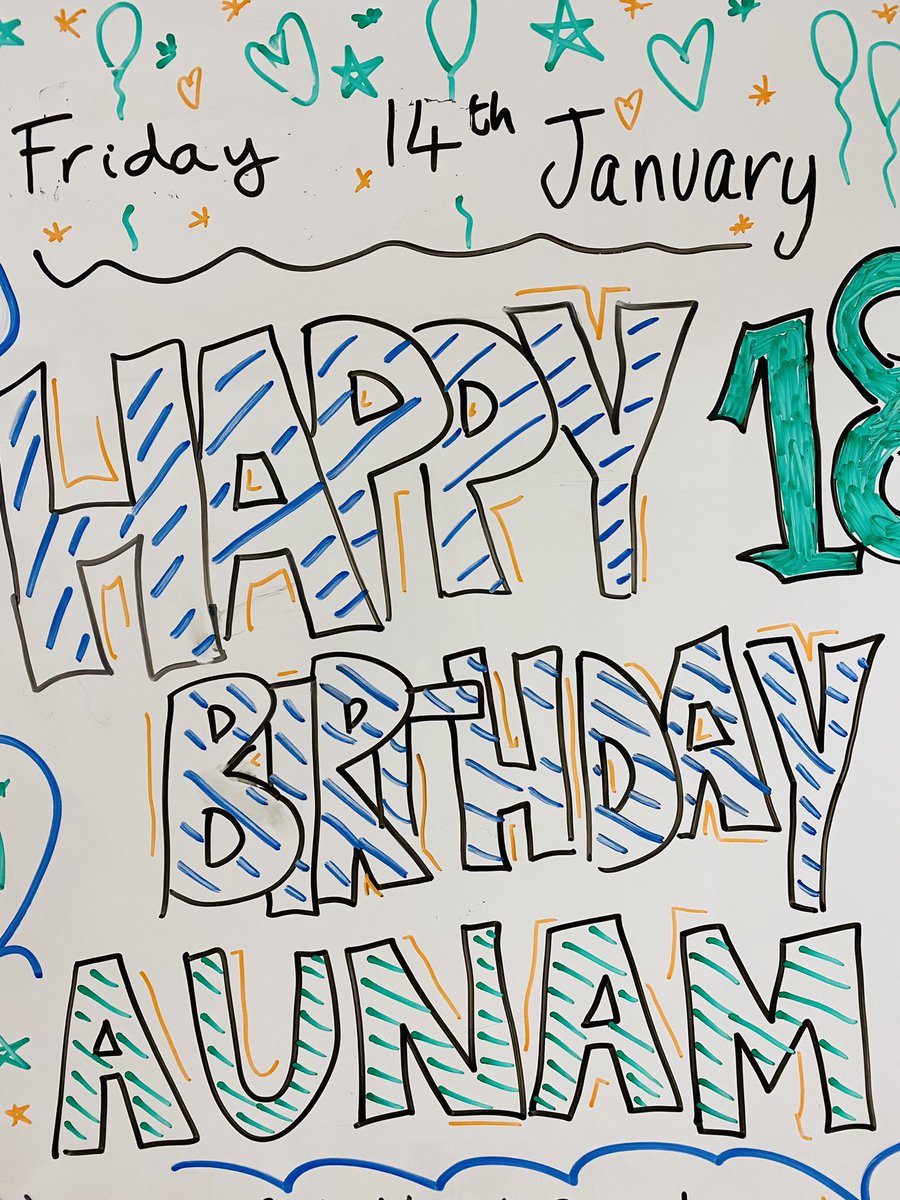 Friday 14th January
HAPPY 18
BIRTHDAY
AUNAM